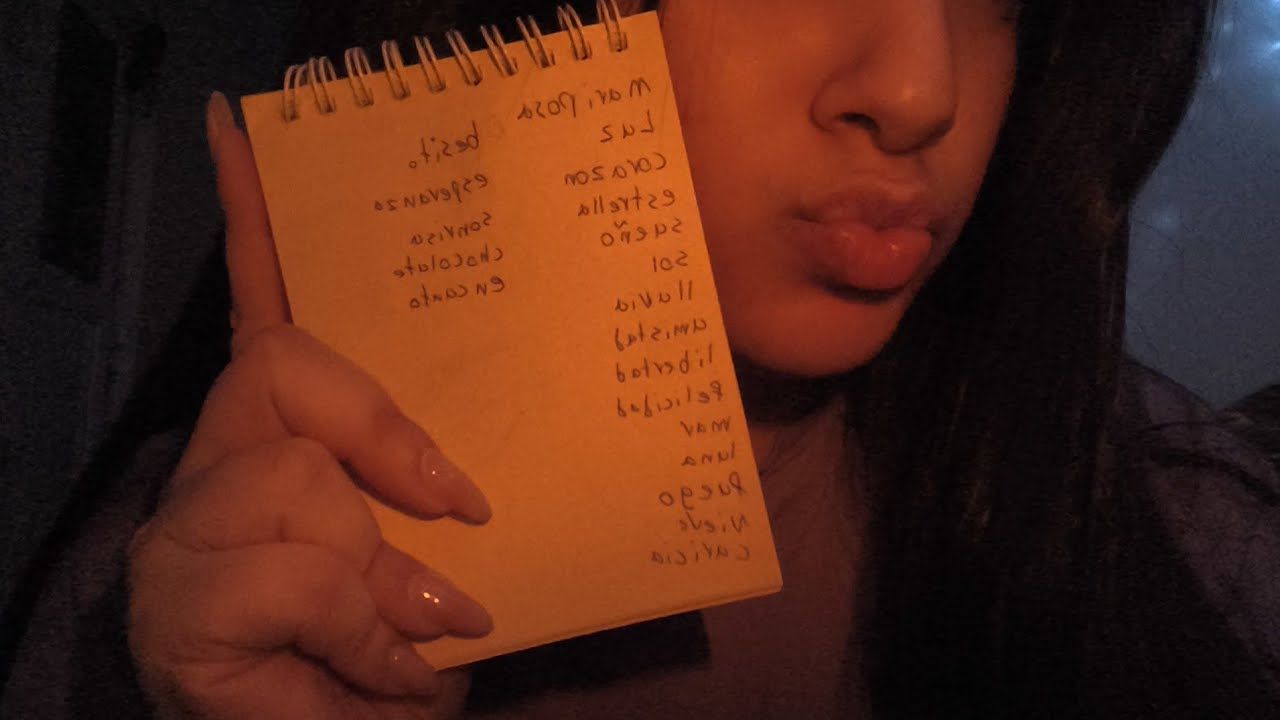 Mariposa
Luz
corazon
estrella
sueño
sol
lluvia
amistad
libertad
felicidad
mar
luna
fuego
Nieve
caricia
besito
esperanza
sonrisa
chocolate
encanto